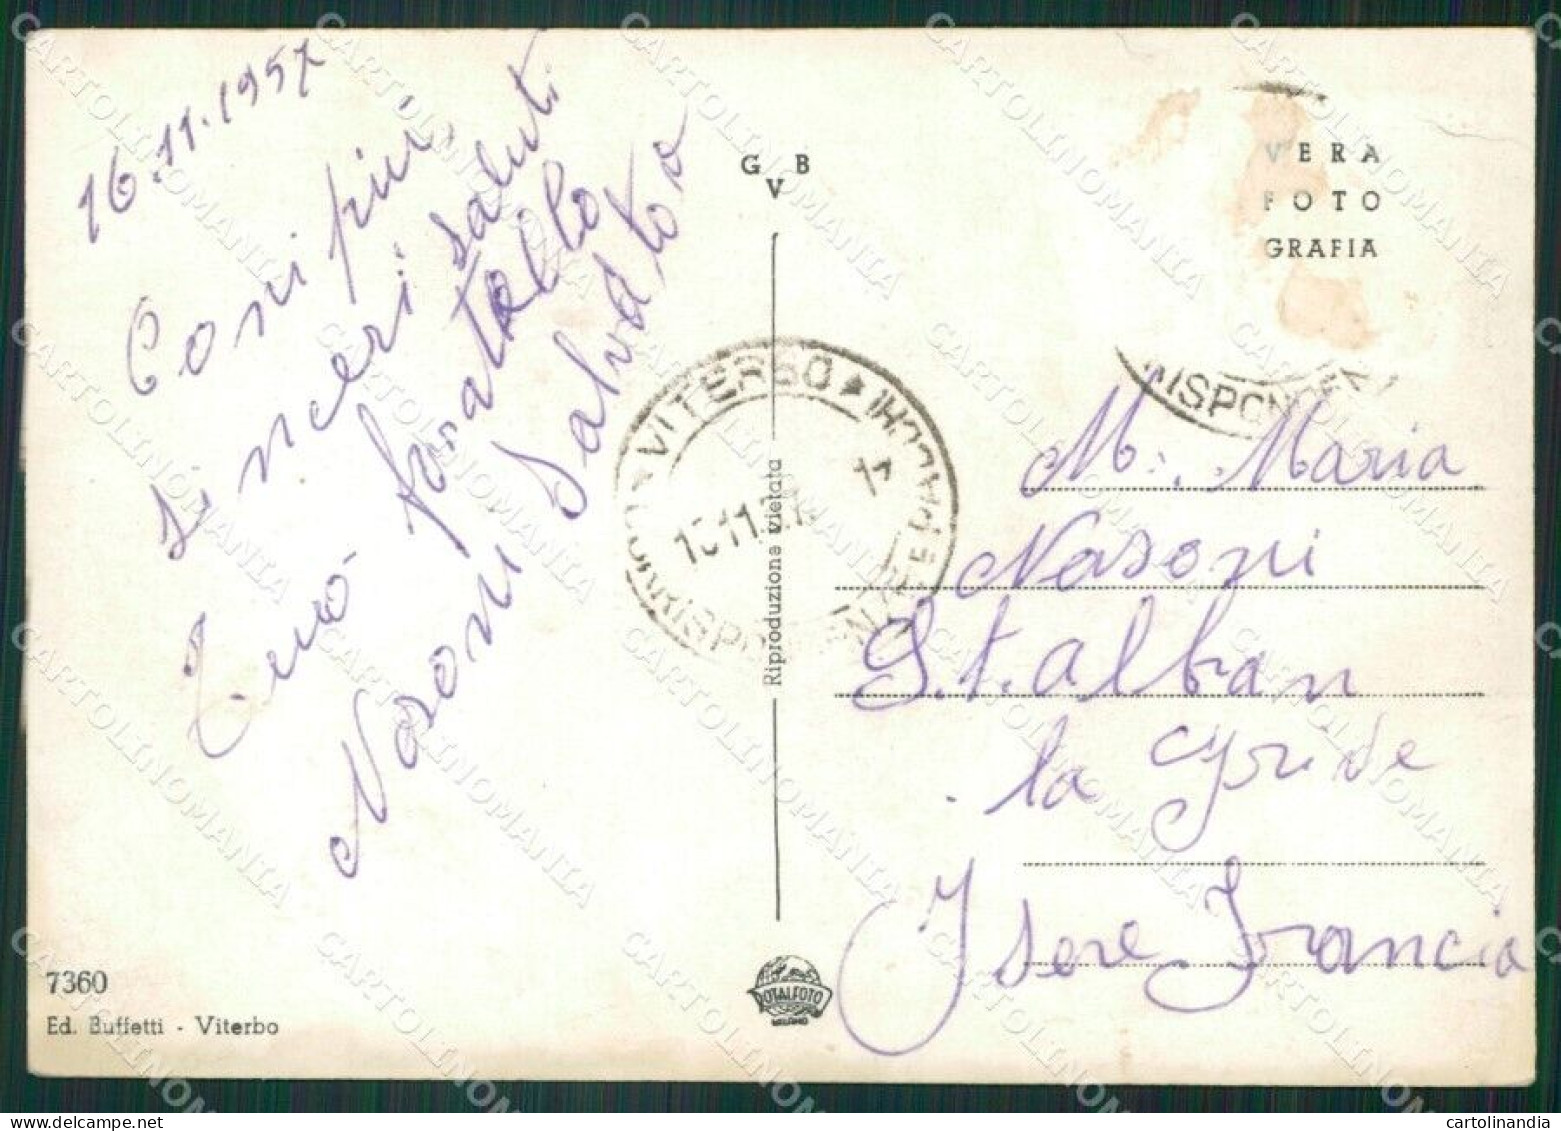 16.11.1957
Con i più
sinceri saluti
Tuo fratello
Nasoni Salvato
G V B
VERA
FOTO
GRAFIA
VITERBO
PACCHI
CORRISPON
Riproduzione vietata
M. Maria
Nasoni
S.t. alban
la
Isere Francia
7360
Ed. Buffetti - Viterbo
ROTALFOTO
MILANO
CARTOLINOMANIA
cartolinandia